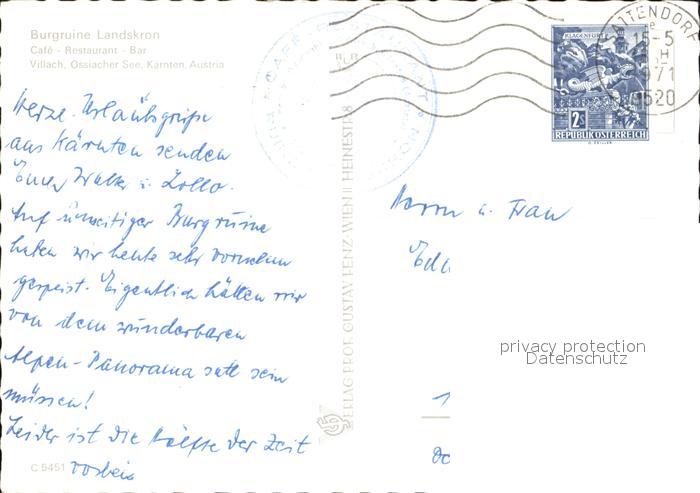 Burgruine Landskron
Café - Restaurant - Bar
Villach, Ossiacher See, Kärnten, Austria
Herzl. Urlaubsgrüße
aus Kärnten senden
Euch u. Lollo.
Auf umseitiger Burgruine
haben wir heute sehr vornehm
gespeist. Eigentlich hätten wir
von dem wunderbaren
Alpen-Panorama satt sein
müssen!
Leider ist die Hälfte der Zeit
vorbei
C 5451
VERLAG PROF. GUSTAV FENZ WIEN II HEINESTR 8
KLAGENFURT
2S
REPUBLIK ÖSTERREICH
15-5
1971
9520
Herrn u. Frau
privacy protection
Datenschutz